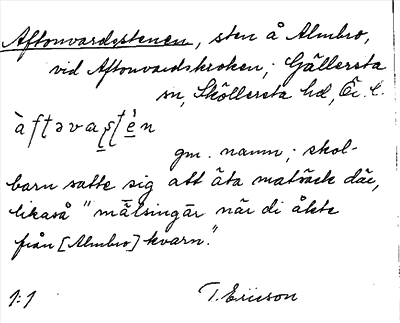 Aftonvardsstenen, sten å Almbro,
vid Aftonvardskroken; Gällersta
sn, Sköllersta hd, Ör. l.
àftəvaștè̱n
gm. namn; skol-
barn satte sig att äta matsäck där,
likaså "mälsingar när di åkte
från [Almbro] kvarn."
1:1 T. Ericson